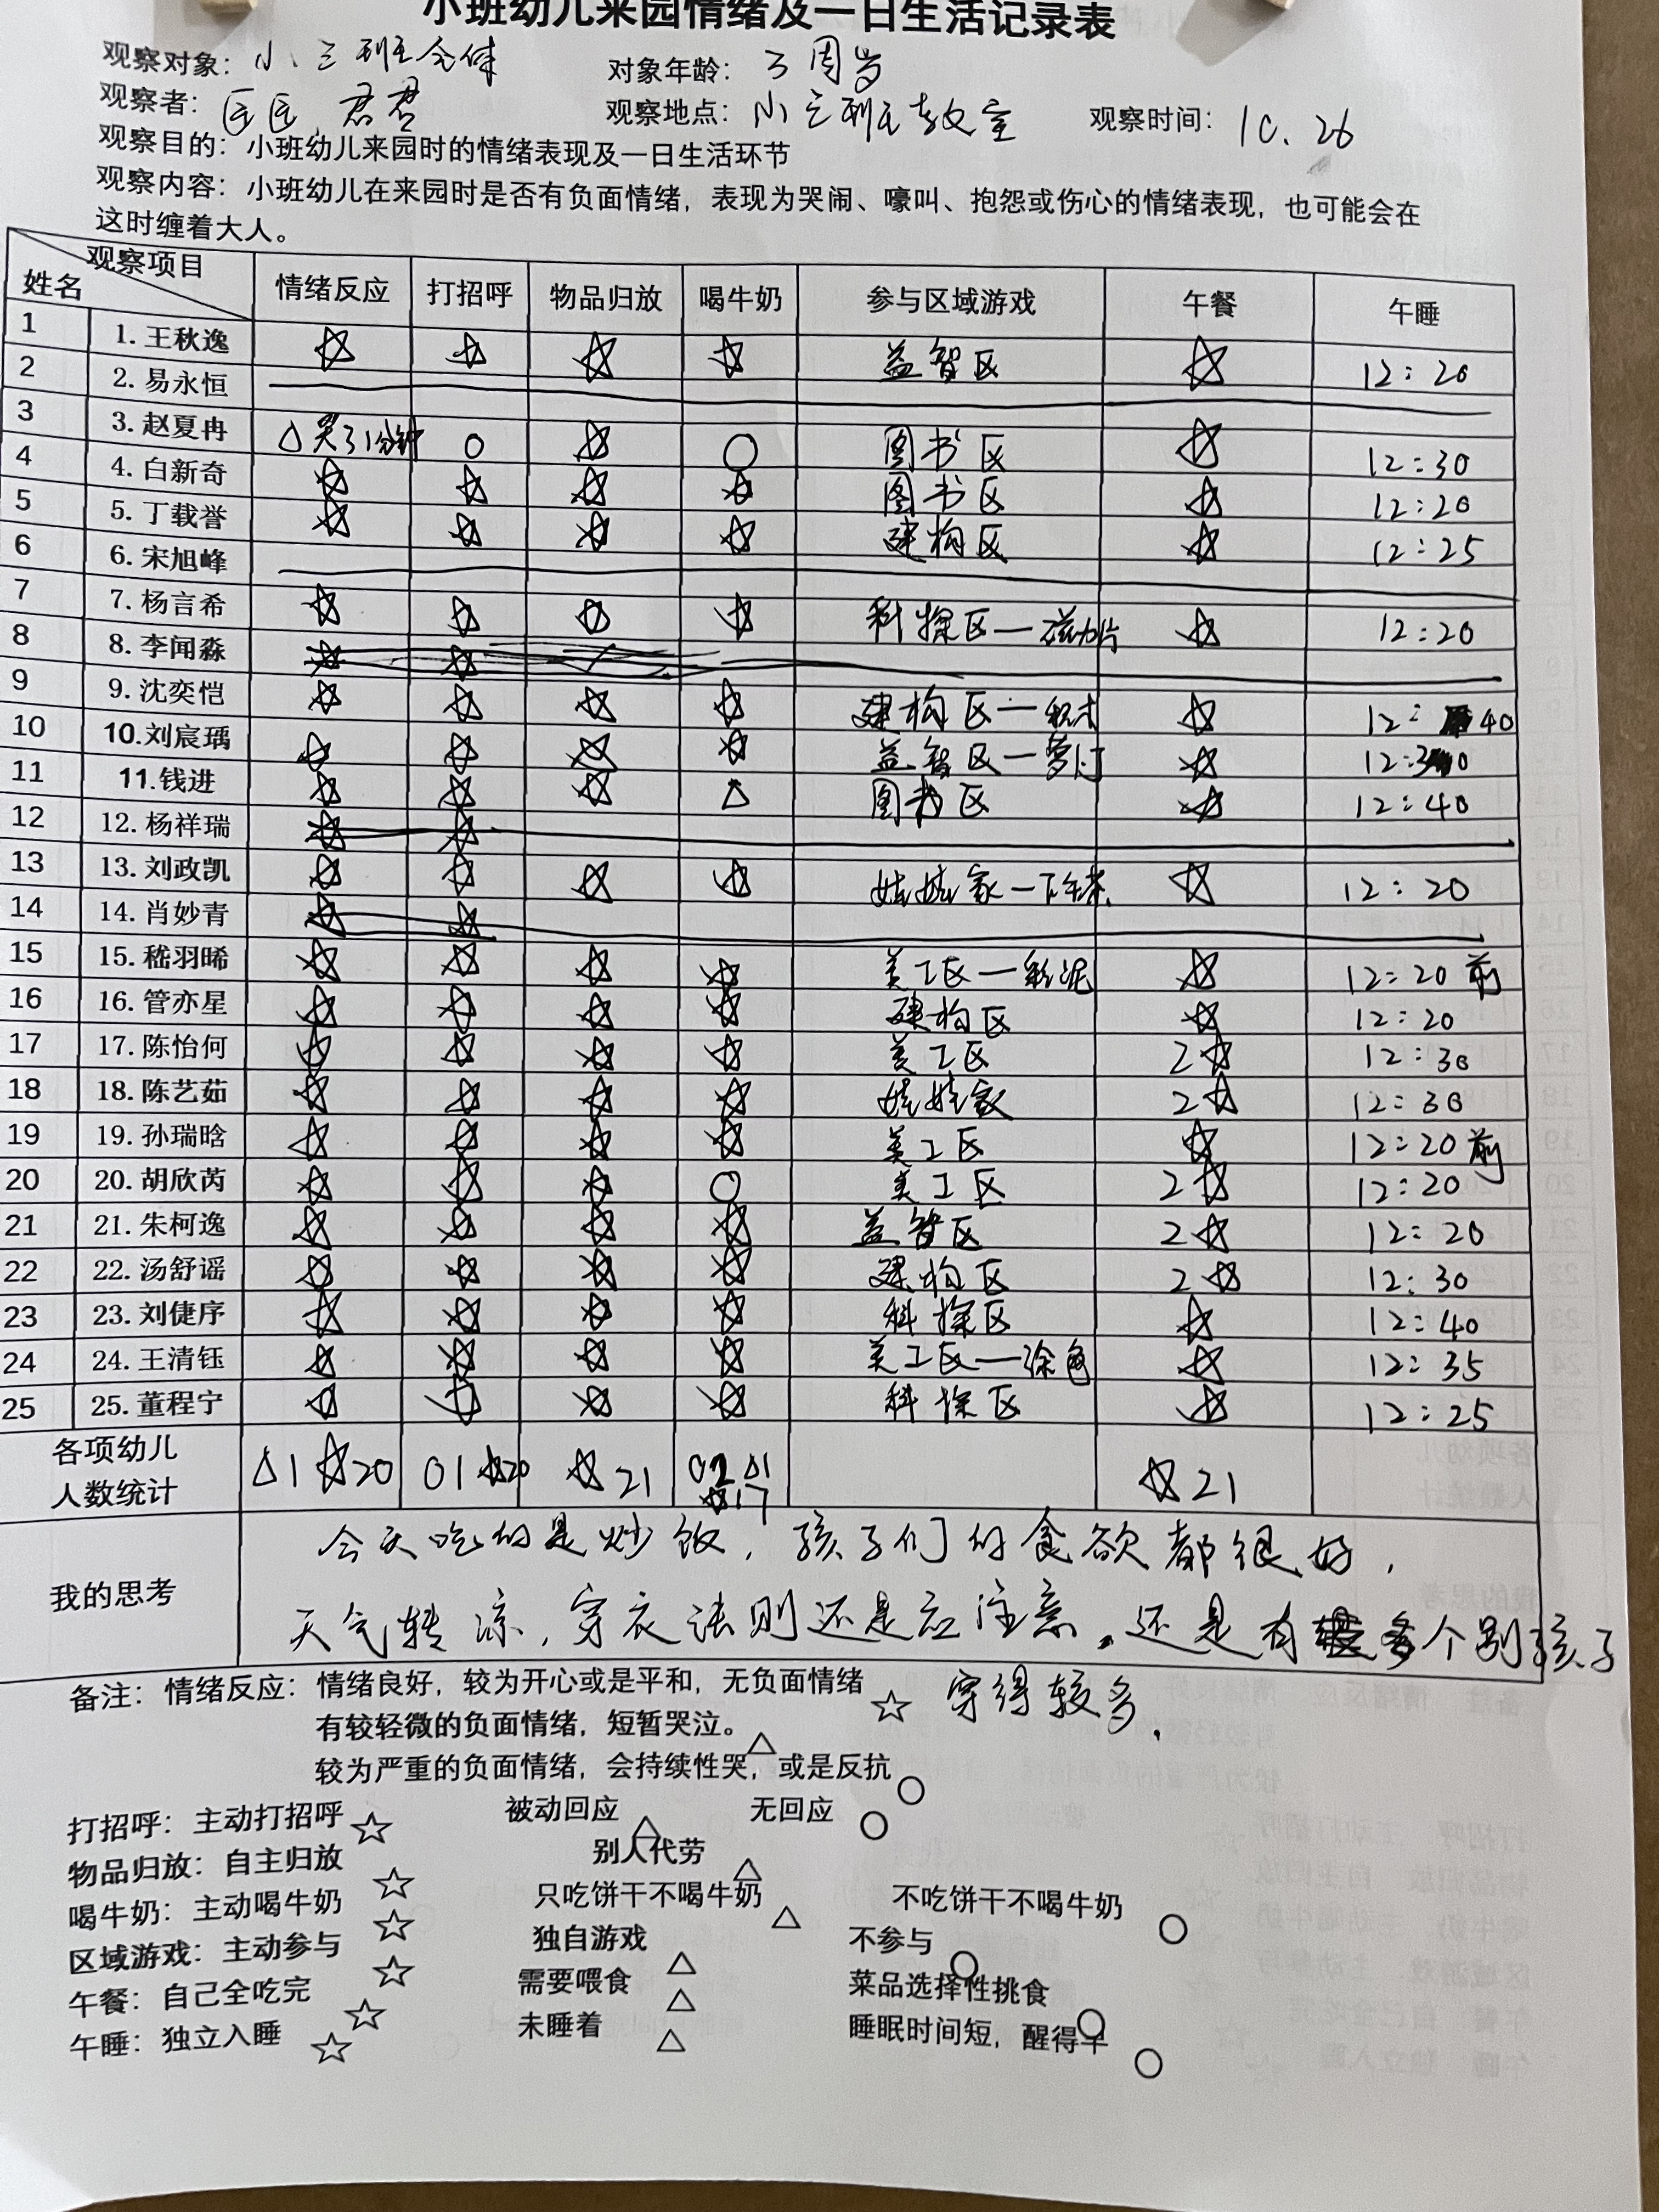 小班幼儿来园情绪及一日生活记录表
观察对象：小三班全体 对象年龄：3周岁
观察者：匡匡，君君 观察地点：小三班教室 观察时间：10.26
观察目的：小班幼儿来园时的情绪表现及一日生活环节
观察内容：小班幼儿在来园时是否有负面情绪，表现为哭闹、嚎叫、抱怨或伤心的情绪表现，也可能会在
这时缠着大人。
观察项目 姓名 情绪反应 打招呼 物品归放 喝牛奶 参与区域游戏 午餐 午睡
1 1.王秋逸 ☆ ☆ ☆ ☆ 益智区 ☆ 12:20
2 2.易永恒
3 3.赵夏冉 △哭了1分钟 ○ ☆ ○ 图书区 ☆ 12:30
4 4.白新奇 ☆ ☆ ☆ ☆ 图书区 ☆ 12:20
5 5.丁载誉 ☆ ☆ ☆ ☆ 建构区 ☆ 12:25
6 6.宋旭峰
7 7.杨言希 ☆ ☆ ☆ ☆ 科探区—磁力片 ☆ 12:20
8 8.李闻淼
9 9.沈奕恺 ☆ ☆ ☆ ☆ 建构区—积木 ☆ 12:40
10 10.刘宸瑀 ☆ ☆ ☆ ☆ 益智区— ☆
11 11.钱进 ☆ ☆ ☆ △ 图书区 ☆ 12:40
12 12.杨祥瑞 ☆ ☆
13 13.刘政凯 ☆ ☆ ☆ ☆ 娃娃家—下午茶 ☆ 12:20
14 14.肖妙青 ☆ ☆
15 15.嵇羽晞 ☆ ☆ ☆ ☆ 美工区—彩泥 ☆ 12:20前
16 16.管亦星 ☆ ☆ ☆ ☆ 建构区 ☆ 12:20
17 17.陈怡何 ☆ ☆ ☆ ☆ 美工区 2☆ 12:30
18 18.陈艺茹 ☆ ☆ ☆ ☆ 娃娃家 2☆ 12:30
19 19.孙瑞晗 ☆ ☆ ☆ ☆ 美工区 ☆ 12:20前
20 20.胡欣芮 ☆ ☆ ☆ ○ 美工区 2☆ 12:20
21 21.朱柯逸 ☆ ☆ ☆ ☆ 益智区 2☆ 12:20
22 22.汤舒谣 ☆ ☆ ☆ ☆ 建构区 2☆ 12:30
23 23.刘倢序 ☆ ☆ ☆ ☆ 科探区 ☆ 12:40
24 24.王清钰 ☆ ☆ ☆ ☆ 美工区—涂色 ☆ 12:35
25 25.董程宁 ☆ ☆ ☆ ☆ 科探区 ☆ 12:25
各项幼儿
人数统计 △1 ☆20 ○1 ☆20 ☆21 ○2 △1 ☆17 ☆21
我的思考
今天吃的是炒饭，孩子们的食欲都很好，
天气转凉，穿衣法则还是应注意。还是有个别孩子
穿得较多.
备注：情绪反应：情绪良好，较为开心或是平和，无负面情绪☆
有较轻微的负面情绪，短暂哭泣。△
较为严重的负面情绪，会持续性哭，或是反抗○
打招呼：主动打招呼☆ 被动回应△ 无回应○
物品归放：自主归放☆ 别人代劳△
喝牛奶：主动喝牛奶☆ 只吃饼干不喝牛奶△ 不吃饼干不喝牛奶○
区域游戏：主动参与☆ 独自游戏△ 不参与○
午餐：自己全吃完☆ 需要喂食△ 菜品选择性挑食○
午睡：独立入睡☆ 未睡着△ 睡眠时间短，醒得早○